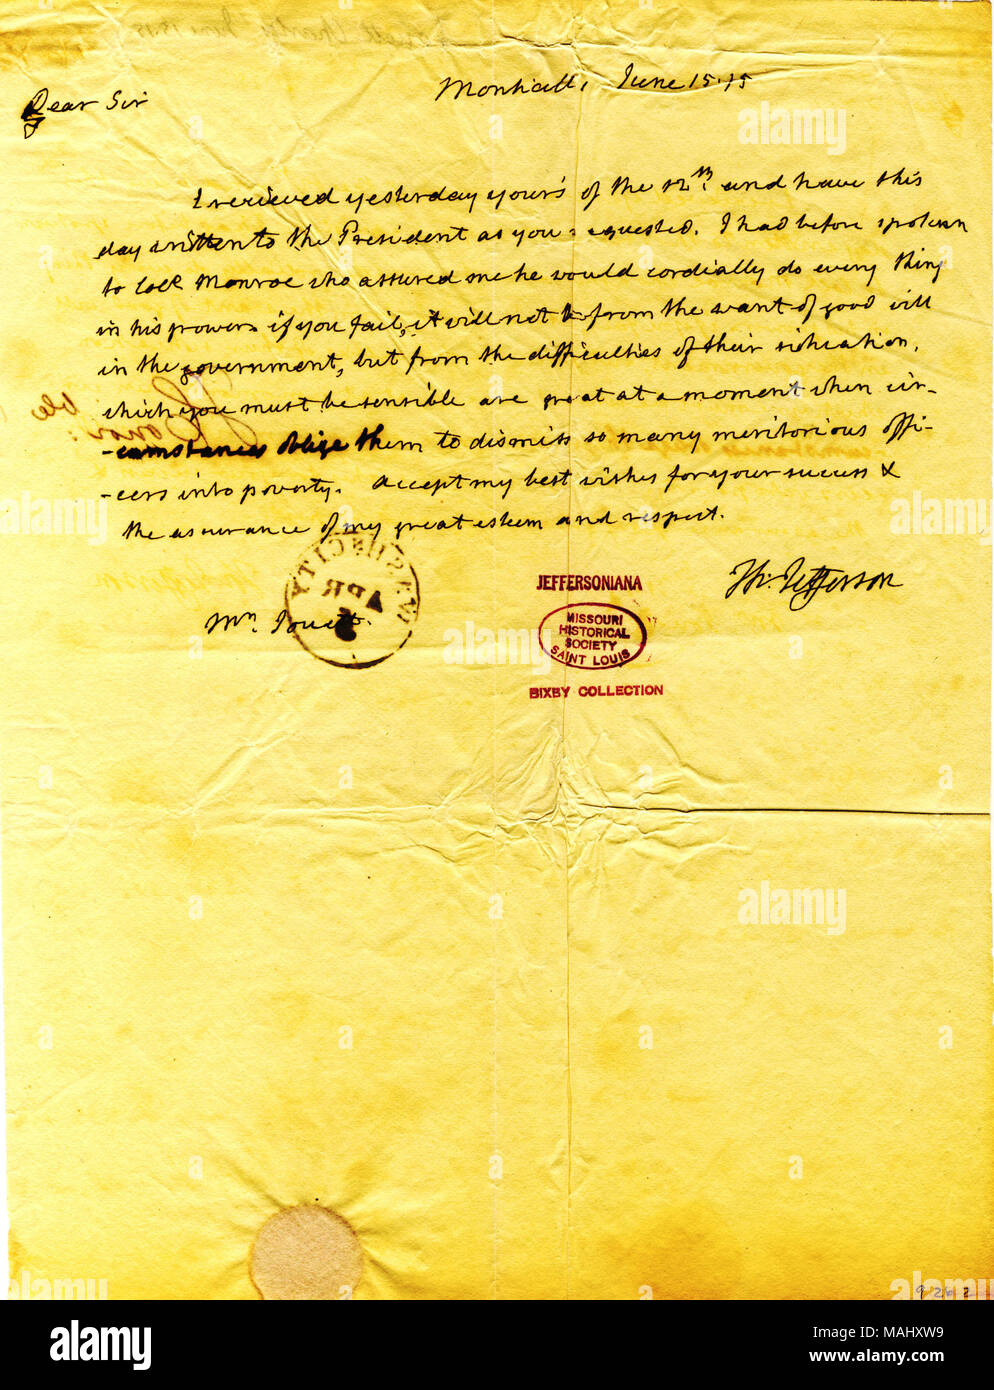 Monticello June 15. 15
Dear Sir
I recieved yesterday yours of the 12th. and have this
day written to the President as you requested. I had before spoken
to Colo. Monroe who assured me he would cordially do every thing
in his power. if you fail, it will not be from the want of good will
in the government, but from the difficulties of their situation,
which you must be sensible are great at a moment when cir-
-cumstances oblige them to dismiss so many meritorious offi-
-cers into poverty. Accept my best wishes for your success &
the assurance of my great esteem and respect.
Th: Jefferson
Mr.
CITY
APR
JEFFERSONIANA
MISSOURI
HISTORICAL
SOCIETY
SAINT LOUIS
BIXBY COLLECTION
9262
alamy
Image ID: MAHXW9
www.alamy.com